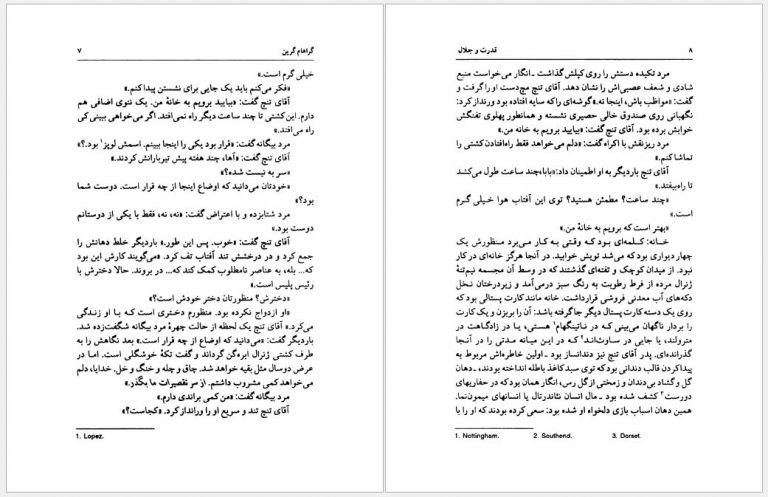 گراهام گرین ۷
خیلی گرم است.»
«فکر می‌کنم باید یک جایی برای نشستن پیدا کنم.»
آقای تنچ گفت: «بیایید برویم به خانهٔ من. یک ننوی اضافی هم
دارم. این کشتی تا چند ساعت دیگر راه نمی‌افتد. اگر می‌خواهی ببینی کی
راه می‌افتد.»
مرد بیگانه گفت: «قرار بود یکی را اینجا ببینم. اسمش لوپز¹ بود.؟»
آقای تنچ گفت: «آها، چند هفته پیش تیربارانش کردند.»
«سر به نیست شده؟»
«خودتان می‌دانید که اوضاع اینجا از چه قرار است. دوست شما
بود؟»
مرد شتابزده و با اعتراض گفت: «نه، نه، فقط با یکی از دوستانم
دوست بود.»
آقای تنچ گفت: «خوب. پس این طور.» باردیگر خلط دهانش را
جمع کرد و در درخشش تند آفتاب تف کرد. «می‌گویند کارش این بود
که... بله، به عناصر نامطلوب کمک کند که... در بروند. حالا دخترش با
رئیس پلیس است.»
«دخترش؟ منظورتان دختر خودش است؟»
«او ازدواج نکرده بود. منظورم دختری است که با او زندگی
می‌کرد.» آقای تنچ یک لحظه از حالت چهرهٔ مرد بیگانه شگفت‌زده شد.
باردیگر گفت: «می‌دانید که اوضاع از چه قرار است.» بعد نگاهش را به
طرف کشتی ژنرال ابره‌گن گرداند و گفت تکهٔ خوشگلی است. اما در
عرض دوسال مثل بقیه خواهد شد. چاق و چله و خنگ و خل. خدایا، دلم
می‌خواهد کمی مشروب داشتم. از سر تقصیرات ما بگذر.»
مرد بیگانه گفت: «من کمی براندی دارم.»
آقای تنچ تند و سریع او را ورانداز کرد. «کجاست؟»
1. Lopez.
۸ قدرت و جلال
مرد تکیده دستش را روی کپلش گذاشت ـ انگار می‌خواست منبع
شادی و شعف عصبی‌اش را نشان دهد. آقای تنچ مچ‌دست او را گرفت و
گفت: «مواظب باش، اینجا نه.» گوشه‌ای را که سایه افتاده بود ورنداز کرد:
نگهبانی روی صندوق خالی حصیری نشسته و همانطور پهلوی تفنگش
خوابش برده بود. آقای تنچ گفت: «بیایید برویم به خانه من.»
مرد ریزنقش با اکراه گفت: «دلم می‌خواهد فقط راه‌افتادن کشتی را
تماشا کنم.»
آقای تنچ باردیگر به او اطمینان داد: «بابا، چند ساعت طول می‌کشد
تا راه بیفتد.»
«چند ساعت؟ مطمئن هستید؟ توی این آفتاب هوا خیلی گرم
است.»
«بهتر است که برویم به خانهٔ من.»
خانه: کلمه‌ای بود که وقتی به کار می‌برد منظورش یک
چهار دیواری بود که می‌شد تویش خوابید. در آنجا هرگز خانه‌ای در کار
نبود. از میدان کوچک و تفته‌ای گذشتند که در وسط آن مجسمه نیم‌تنهٔ
ژنرال مرده از فرط رطوبت به رنگ سبز درمی‌آمد و زیردرختان نخل
دکه‌های آب معدنی فروشی قرارداشت. خانه مانند کارت پستالی بود که
روی یک دسته کارت پستال دیگر جا گرفته باشد: آن را بریزن و یک کارت
را بردار ناگهان می‌بینی که در ناتینگهام¹ هستی، یا در زادگاهت در
مترولند، یا جایی در ساوت‌اند² که در این میانه مدتی را در آنجا
گذرانده‌ای. پدر آقای تنچ نیز دندانساز بود ـ اولین خاطره‌اش مربوط به
پیدا کردن قالب دندانی بود که توی سبد کاغذ باطله انداخته بودند، ـ دهان
گل و گشاد بی‌دندان و زمختی از گل رس، انگار همان بود که در حفاریهای
دورست³ کشف شده بود ـ مال انسان نئاندرتال یا انسانهای میمون‌نما.
همین دهان اسباب بازی دلخواه او شده بود: سعی کرده بودند که او را با
1. Nottingham. 2. Southend. 3. Dorset.